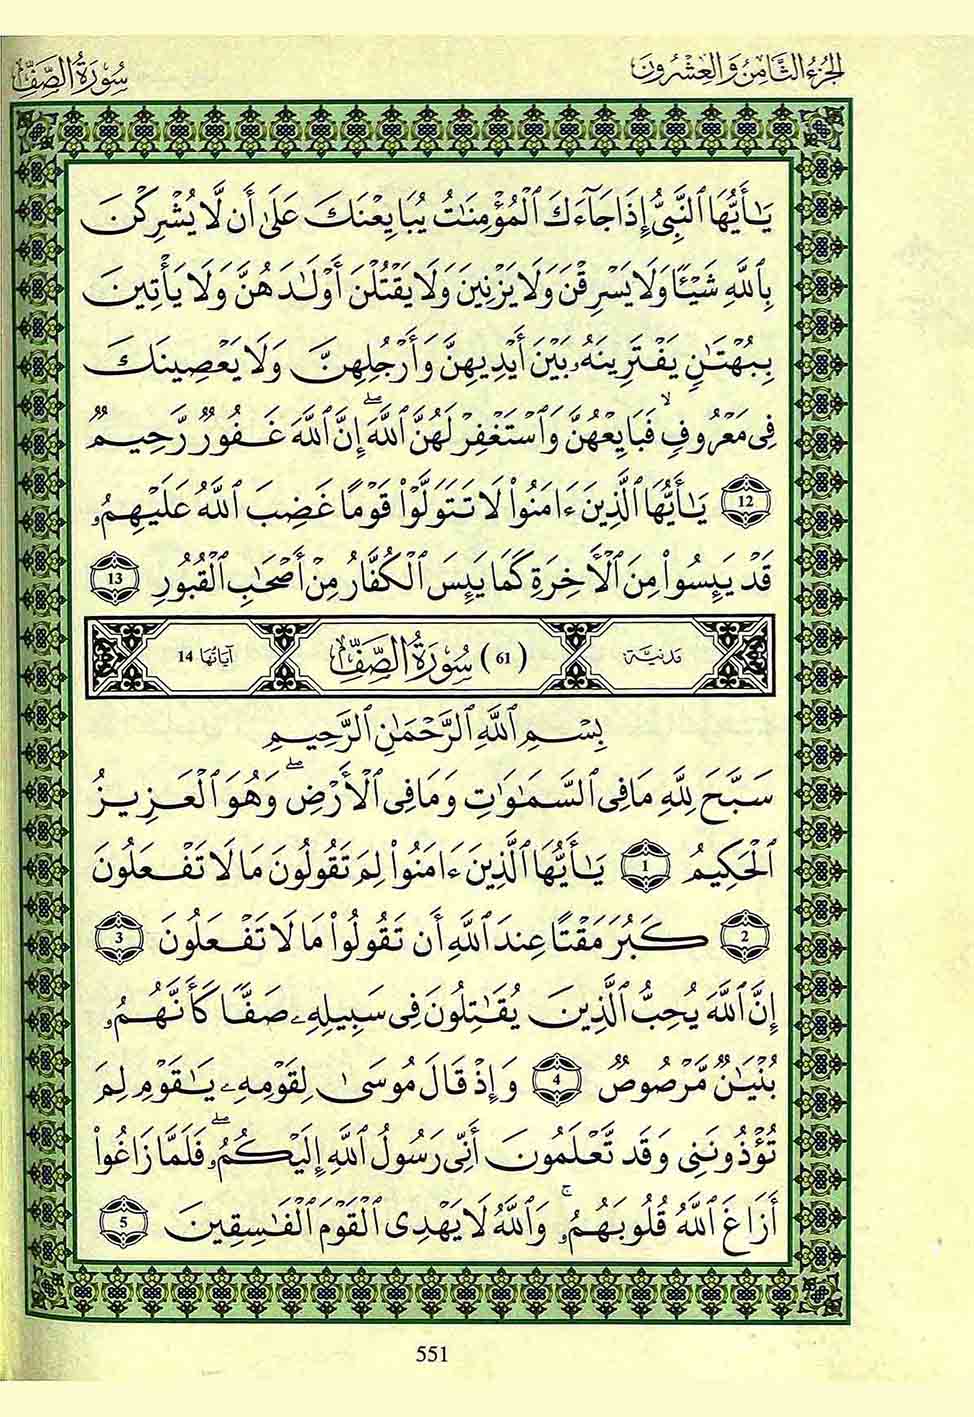 الجزء الثامن والعشرون
سورة الصف
يَٰٓأَيُّهَا ٱلنَّبِىُّ إِذَا جَآءَكَ ٱلْمُؤْمِنَٰتُ يُبَايِعْنَكَ عَلَىٰٓ أَن لَّا يُشْرِكْنَ
بِٱللَّهِ شَيْـًٔا وَلَا يَسْرِقْنَ وَلَا يَزْنِينَ وَلَا يَقْتُلْنَ أَوْلَٰدَهُنَّ وَلَا يَأْتِينَ
بِبُهْتَٰنٍ يَفْتَرِينَهُۥ بَيْنَ أَيْدِيهِنَّ وَأَرْجُلِهِنَّ وَلَا يَعْصِينَكَ
فِى مَعْرُوفٍ ۙ فَبَايِعْهُنَّ وَٱسْتَغْفِرْ لَهُنَّ ٱللَّهَ ۖ إِنَّ ٱللَّهَ غَفُورٌ رَّحِيمٌ
12 يَٰٓأَيُّهَا ٱلَّذِينَ ءَامَنُوا۟ لَا تَتَوَلَّوْا۟ قَوْمًا غَضِبَ ٱللَّهُ عَلَيْهِمُۥ
قَدْ يَئِسُوا۟ مِنَ ٱلْأَخِرَةِ كَمَا يَئِسَ ٱلْكُفَّارُ مِنْ أَصْحَٰبِ ٱلْقُبُورِ 13
مدنية (61) سورة الصف آياتها 14
بِسْمِ ٱللَّهِ ٱلرَّحْمَٰنِ ٱلرَّحِيمِ
سَبَّحَ لِلَّهِ مَا فِى ٱلسَّمَٰوَٰتِ وَمَا فِى ٱلْأَرْضِ ۖ وَهُوَ ٱلْعَزِيزُ
ٱلْحَكِيمُ 1 يَٰٓأَيُّهَا ٱلَّذِينَ ءَامَنُوا۟ لِمَ تَقُولُونَ مَا لَا تَفْعَلُونَ
2 كَبُرَ مَقْتًا عِندَ ٱللَّهِ أَن تَقُولُوا۟ مَا لَا تَفْعَلُونَ 3
إِنَّ ٱللَّهَ يُحِبُّ ٱلَّذِينَ يُقَٰتِلُونَ فِى سَبِيلِهِۦ صَفًّا كَأَنَّهُمُۥ
بُنْيَٰنٌ مَّرْصُوصٌ 4 وَإِذْ قَالَ مُوسَىٰ لِقَوْمِهِۦ يَٰقَوْمِ لِمَ
تُؤْذُونَنِى وَقَد تَّعْلَمُونَ أَنِّى رَسُولُ ٱللَّهِ إِلَيْكُمُۥ ۖ فَلَمَّا زَاغُوٓا۟
أَزَاغَ ٱللَّهُ قُلُوبَهُمُۥ ۚ وَٱللَّهُ لَا يَهْدِى ٱلْقَوْمَ ٱلْفَٰسِقِينَ 5
551